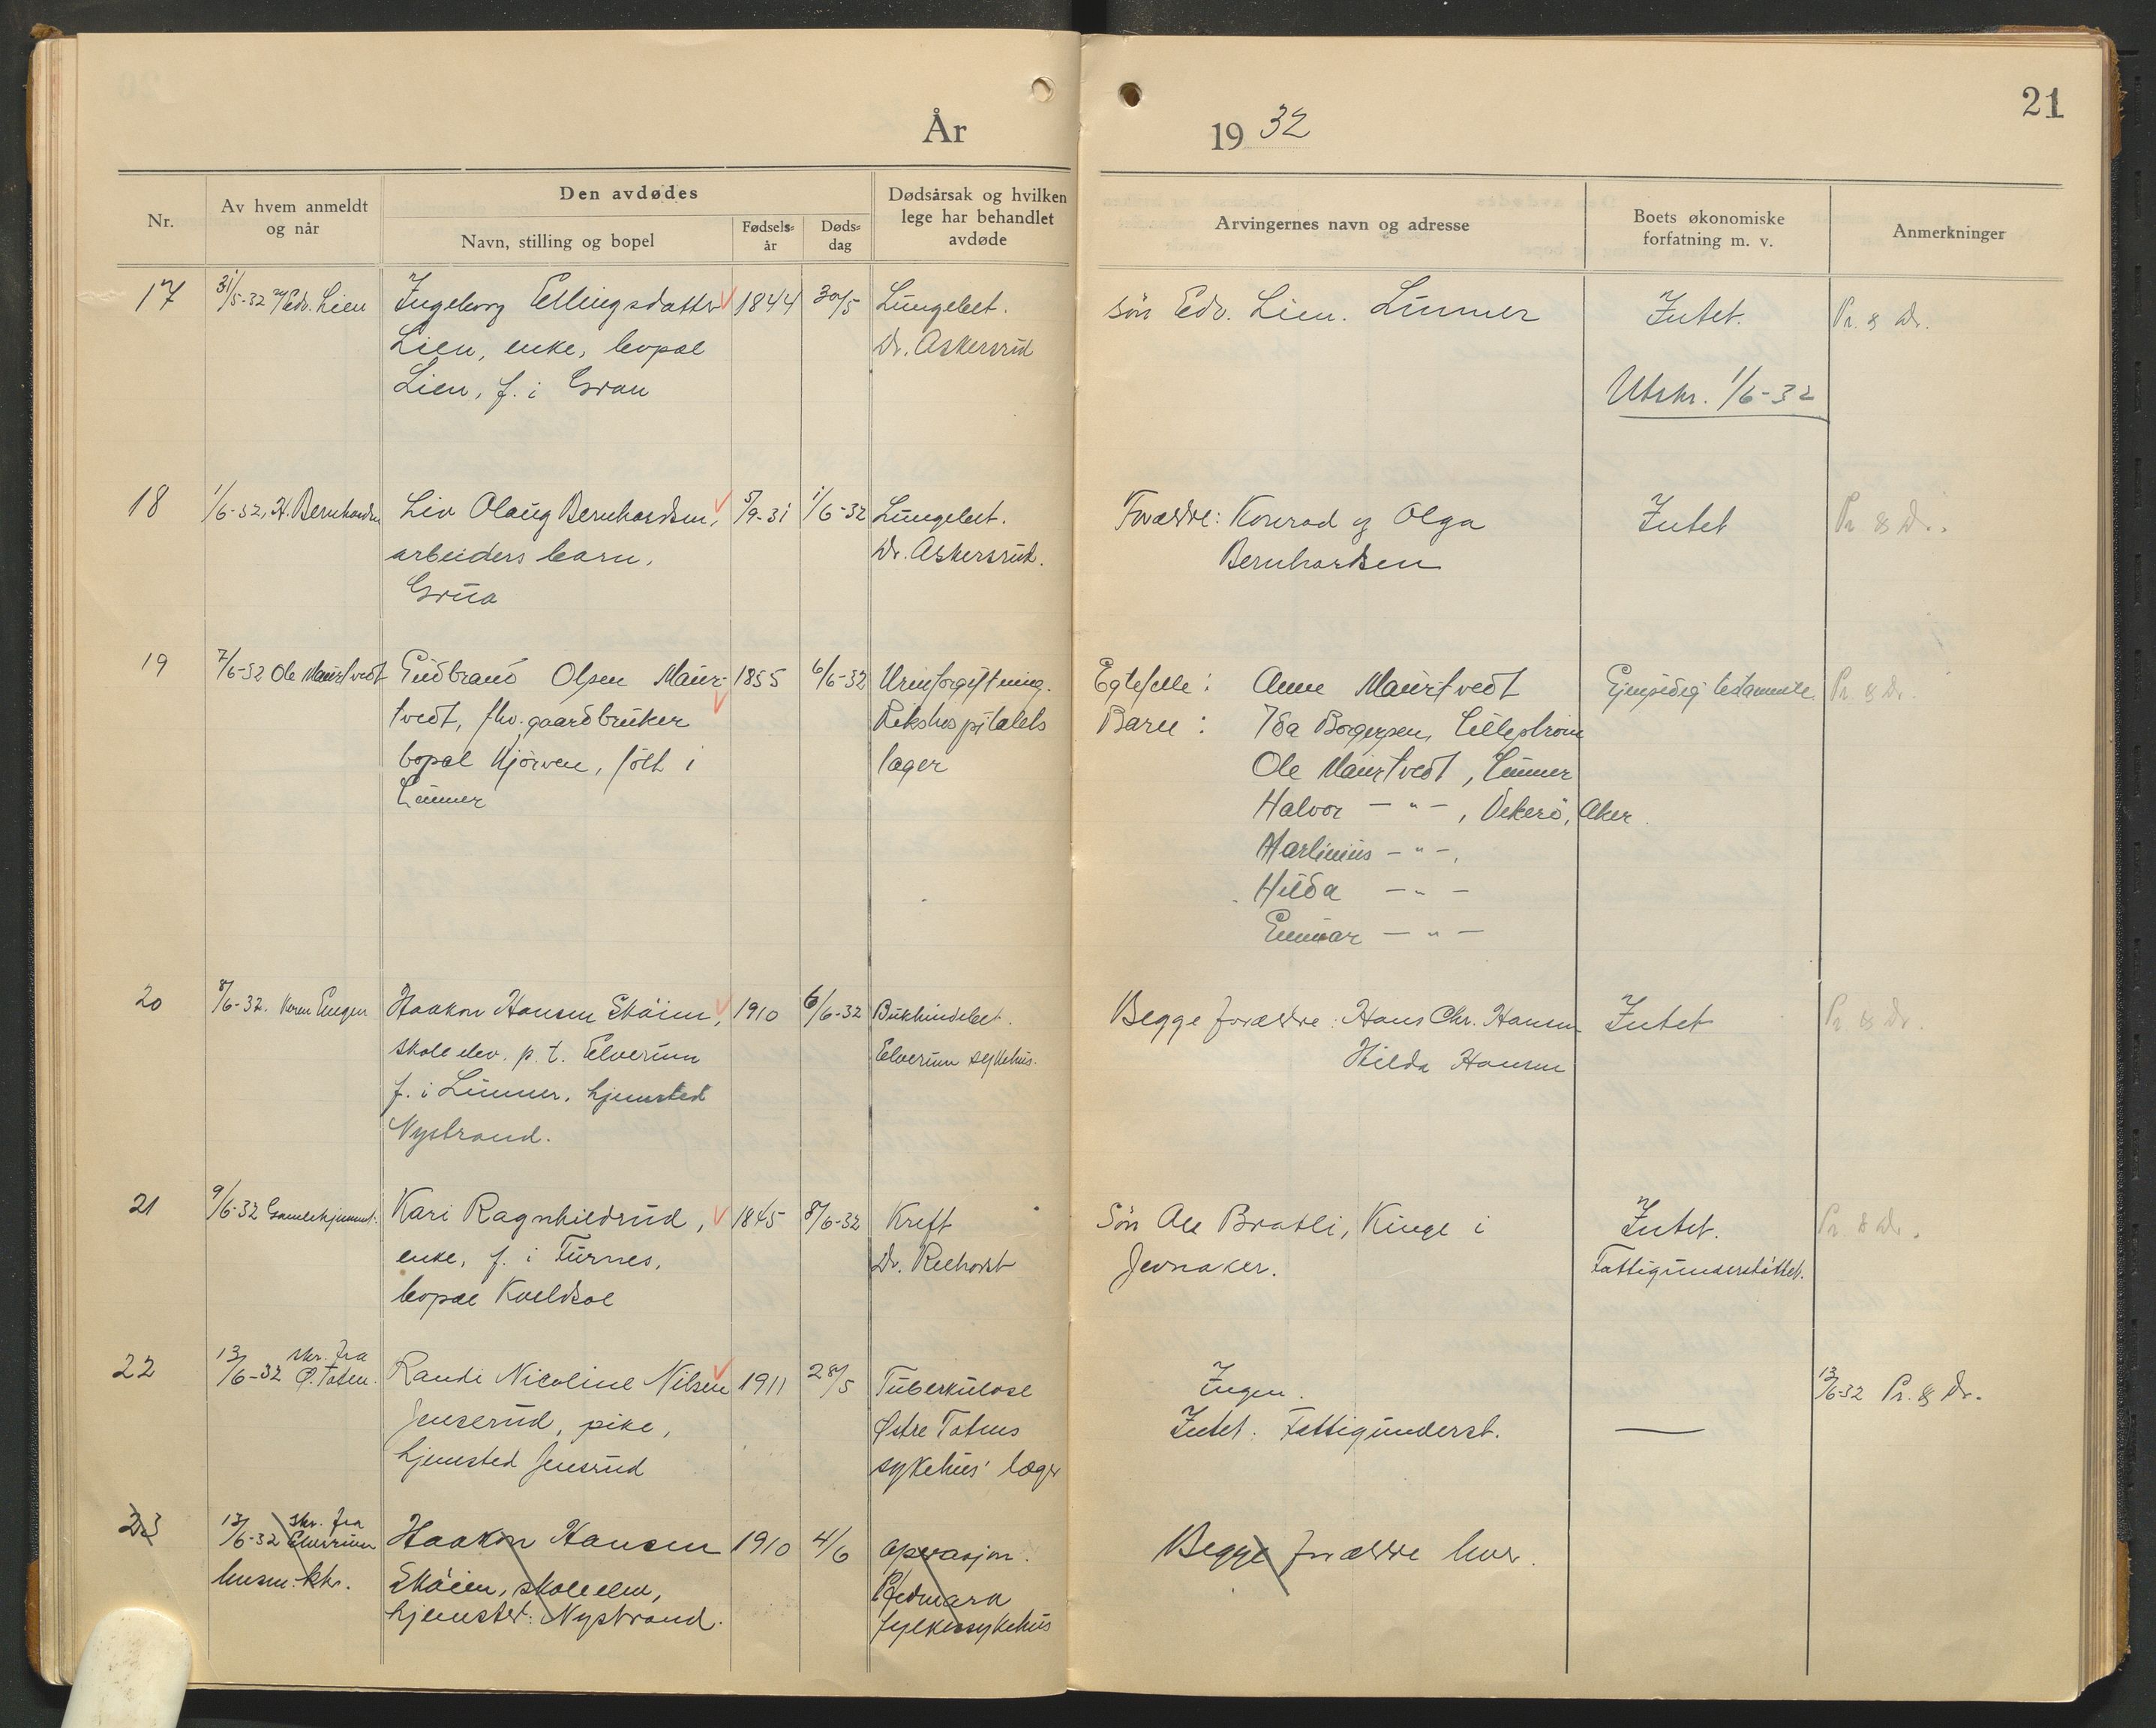 År 1932
21
Nr.
Av hvem anmeldt og når
Den avdødes
Navn, stilling og bopel
Fødselsår
Dødsdag
Dødsårsak og hvilken lege har behandlet avdøde
Arvingernes navn og adresse
Boets økonomiske forfatning m. v.
Anmerkninger
17 31/5-32 Edv. Lien Ingeborg Ellingsdatter 1844 30/5 Lungebet. Søn Edv. Lien. Lunner Intet. Pr. & Dr.
Lien, enke, bopæl Dr. Askersrud
Lien, f. i Gran Utskr. 1/6-32
18 1/6-32, K. Bernhardsen Liv Olaug Bernhardsen, 5/9-31 1/6-32 Lungebet. Forældre: Konrad og Olga Intet Pr. & Dr.
arbeiders barn, Dr. Askersrud. Bernhardsen
Grua
19 7/6-32 Ole Maurtvedt Gudbrand Olsen Maur- 1855 6/6-32 Urinforgiftning. Egtefelle: Anne Maurtvedt Gjensidig testamente Pr. & Dr.
tvedt, fhv. gaardbruker Rikshospitalets Barn: Ida Borgersen, Lillestrøm
bopæl Kjørven, født i læger Ole Maurtvedt, Lunner
Lunner Halvor — " —, Vekerö, Aker.
Martinius — " —,
Hilda — " —
Gunnar — " —
20 8/6-32. Haakon Hansen Skøien, 1910 6/6-32 Bukhindebet. Begge forældre: Hans Chr. Hansen Intet Pr. & Dr.
skoleelev. p. t. Elverum Elverum sykehus. Hilda Hansen
f. i Lunner, hjemsted
Nystrand.
21 9/6-32 Gamlehjemmet. Kari Ragnhildrud, 1845 8/6-32 Kreft Søn Ole Bratli, Kinge i Intet. Pr. & Dr.
enke, f. i Furnes, Dr. Reehorst Jevnaker. Fattigunderstøttet.
bopæl Kveldsol
22 13/6-32 skr. fra Ø. Toten. Randi Nicoline Nilsen 1911 28/5 Tuberkulose Ingen. 13/6-32 Pr. & Dr.
Jenserud, pike, Østre Totens Intet. Fattigunderst. —
hjemsted Jensrud sykehus' læger
23 13/6-32 skr. fra Elverum Haakon Hansen 1910 4/6 Operasjon. Begge forældre lever.
lensm. ktr. Skøien, skoleelev, Hedmark
hjemsted: Nystrand. fylkessykehus